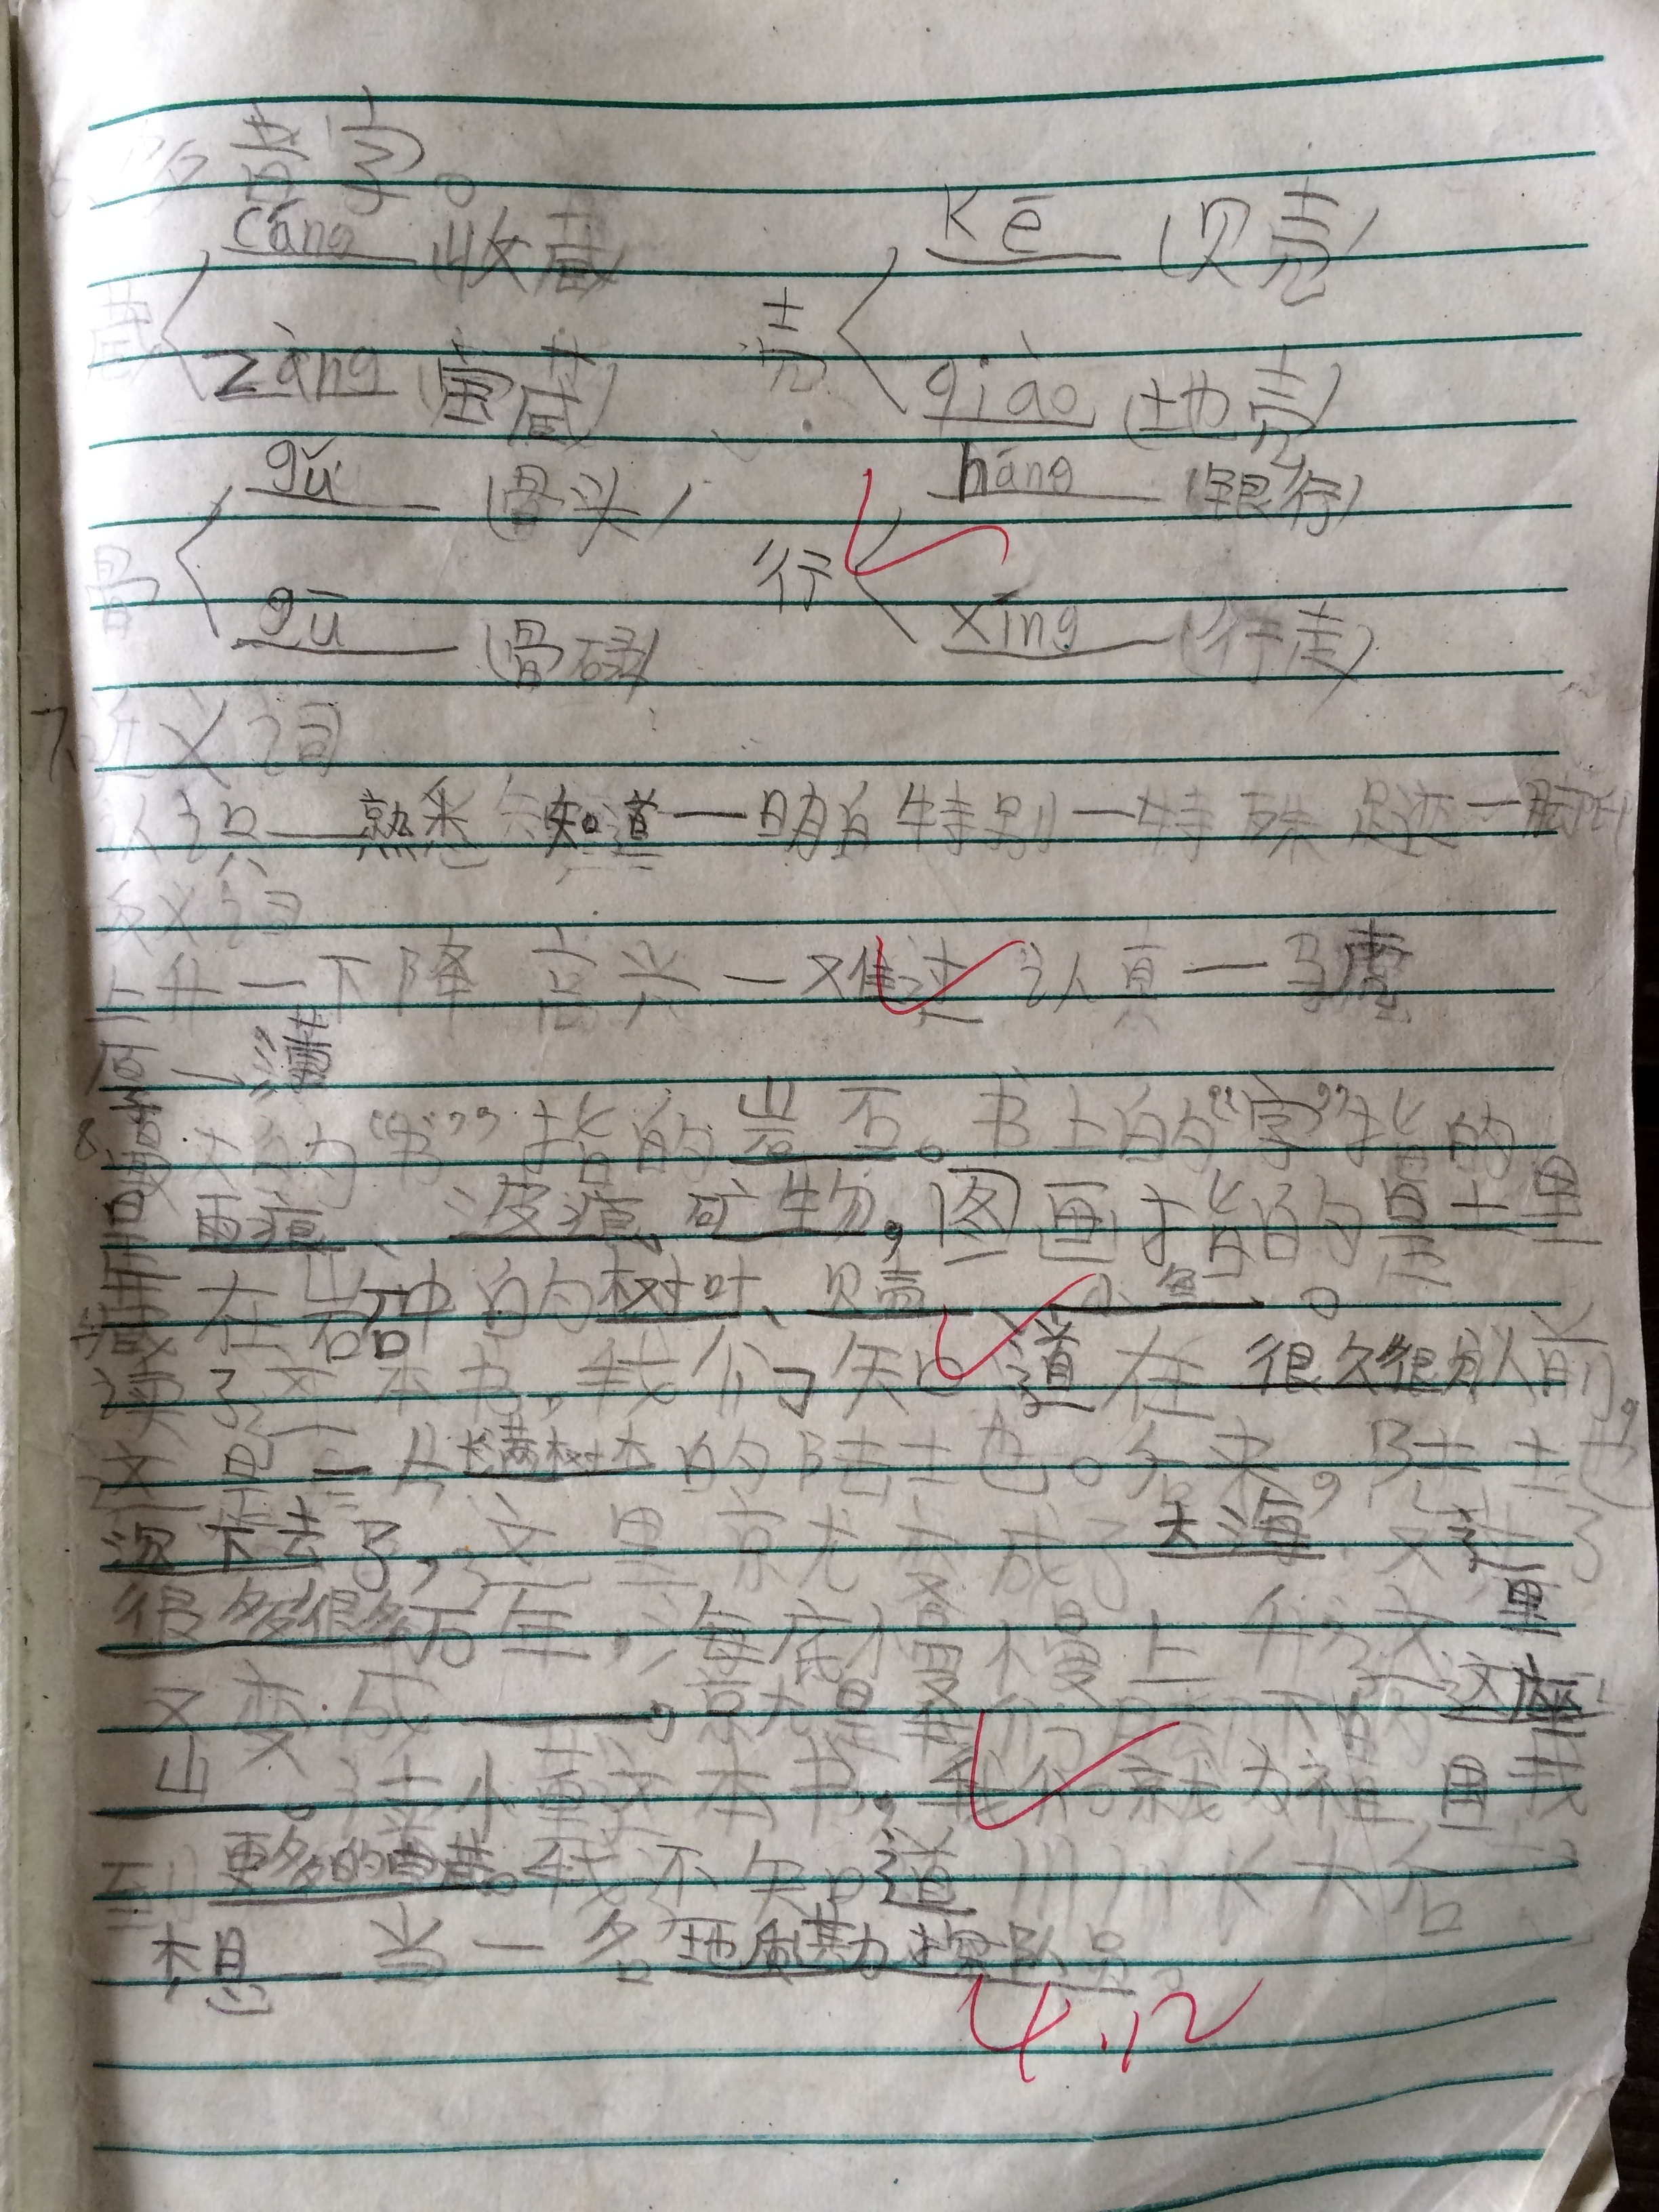 多音字。
cáng 收藏 kē (贝壳)
藏 壳
zàng (宝藏) qiào (地壳)
gǔ (骨头) háng (银行)
骨 行
gū (骨碌) xíng (行走)
7、近义词
认识—熟悉 知道—明白 特别—特殊 足迹—脚印
反义词
上升—下降 高兴—难过 认真—马虎
8、最大的“书”指的岩石。书上的“字”指的
雨痕、波痕、矿物,图画指的是埋
藏在岩石中的树叶、贝壳、小鱼。
读了这本书,我们知道在很久很久以前,
这是一片长满树木的陆地。后来,陆地
沉下去了,这里就变成了大海。又过了
很多很多万年,海底慢慢上升,这里
又变成 ,就是我们脚下的这座
山。读懂这本书,我们就为祖国找
到更多的宝藏。我还知道川川长大后
想 当一名地质勘探队员。
4.12